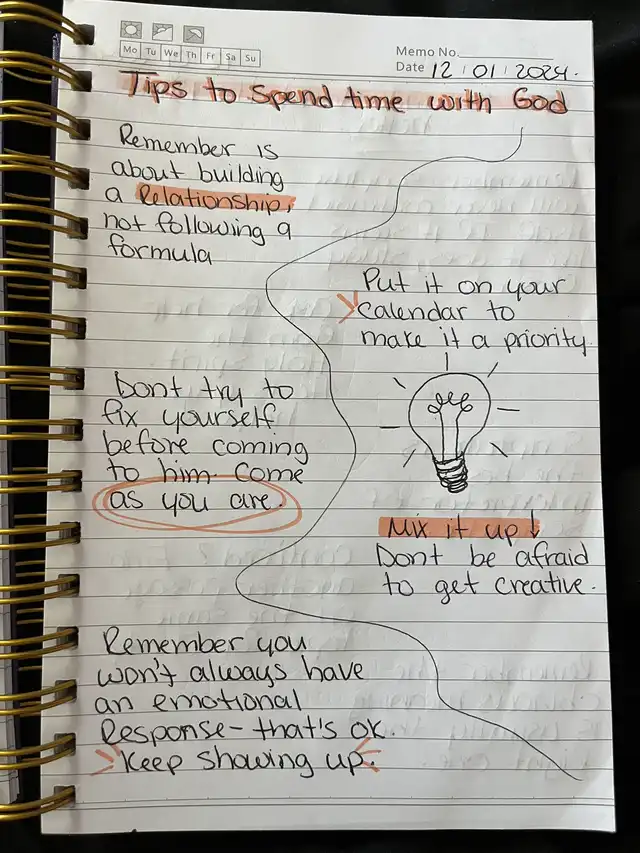 Mo Tu We Th Fr Sa Su
Memo No.
Date 12 01 2024.
Tips to spend time with God
Remember is
about building
a Relationship,
not following a
formula
Put it on your
calendar to
make it a priority.
Dont try to
fix yourself
before coming
to him. Come
as you are.
Mix it up ↓
Dont be afraid
to get creative.
Remember you
won't always have
an emotional
Response - that's ok.
Keep showing up.